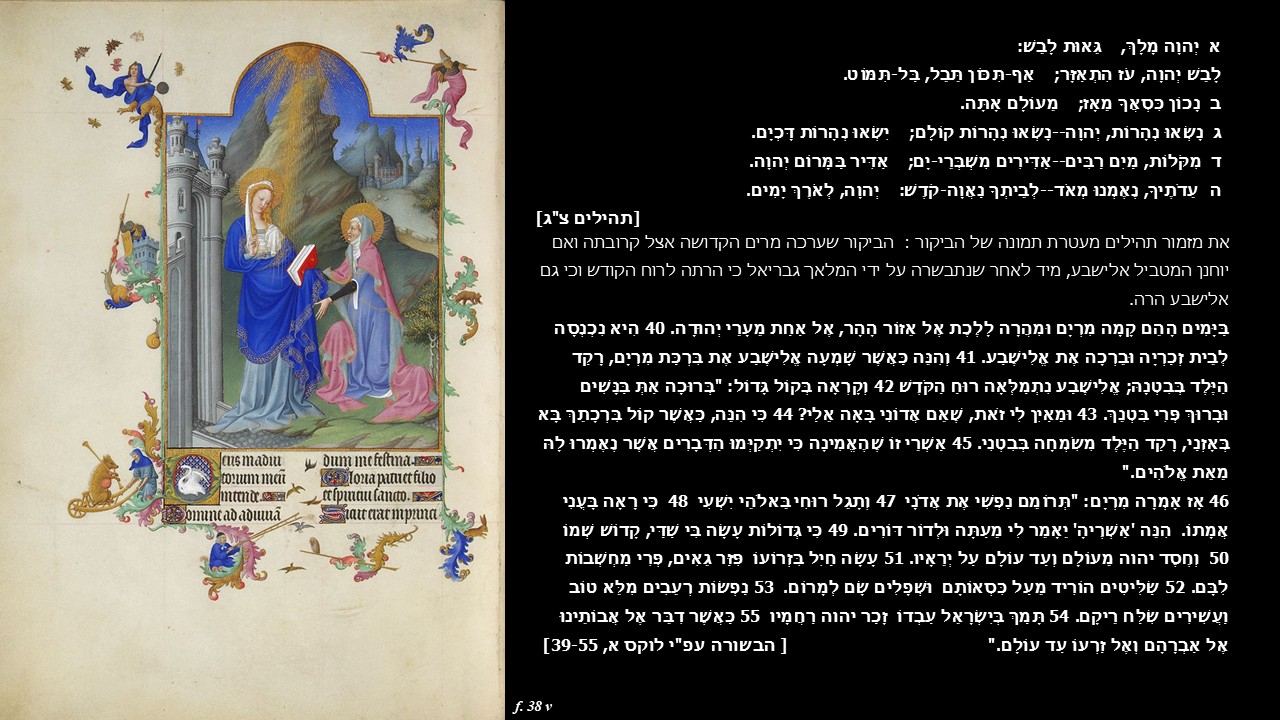 א יְהוָה מָלָךְ, גֵּאוּת לָבֵשׁ:
לָבֵשׁ יְהוָה, עֹז הִתְאַזָּר; אַף-תִּכּוֹן תֵּבֵל, בַּל-תִּמּוֹט.
ב נָכוֹן כִּסְאֲךָ מֵאָז; מֵעוֹלָם אָתָּה.
ג נָשְׂאוּ נְהָרוֹת, יְהוָה--נָשְׂאוּ נְהָרוֹת קוֹלָם; יִשְׂאוּ נְהָרוֹת דָּכְיָם.
ד מִקֹּלוֹת, מַיִם רַבִּים--אַדִּירִים מִשְׁבְּרֵי-יָם; אַדִּיר בַּמָּרוֹם יְהוָה.
ה עֵדֹתֶיךָ, נֶאֶמְנוּ מְאֹד--לְבֵיתְךָ נַאֲוָה-קֹדֶשׁ: יְהוָה, לְאֹרֶךְ יָמִים.
[תהילים צ"ג]
את מזמור תהילים מעטרת תמונה של הביקור : הביקור שערכה מרים הקדושה אצל קרובתה ואם
יוחנן המטביל אלישבע, מיד לאחר שנתבשרה על ידי המלאך גבריאל כי הרתה לרוח הקודש וכי גם
אלישבע הרה.
בַּיָּמִים הָהֵם קָמָה מִרְיָם וּמִהֲרָה לָלֶכֶת אֶל אֵזוֹר הָהָר, אֶל אַחַת מֵעָרֵי יְהוּדָה. 40 הִיא נִכְנְסָה
לְבֵית זְכַרְיָה וּבֵרְכָה אֶת אֱלִישֶׁבַע. 41 וְהִנֵּה כַּאֲשֶׁר שָׁמְעָה אֱלִישֶׁבַע אֶת בִּרְכַּת מִרְיָם, רָקַד
הַיֶּלֶד בְּבִטְנָהּ; אֱלִישֶׁבַע נִתְמַלְּאָה רוּחַ הַקֹּדֶשׁ 42 וְקָרְאָה בְּקוֹל גָּדוֹל: "בְּרוּכָה אַתְּ בַּנָּשִׁים
וּבָרוּךְ פְּרִי בִּטְנֵךְ. 43 וּמֵאַיִן לִי זֹאת, שֶׁאֵם אֲדוֹנִי בָּאָה אֵלַי? 44 כִּי הִנֵּה, כַּאֲשֶׁר קוֹל בִּרְכָתֵךְ בָּא
בְּאָזְנַי, רָקַד הַיֶּלֶד מִשִּׂמְחָה בְּבִטְנִי. 45 אַשְׁרֵי זוֹ שֶׁהֶאֱמִינָה כִּי יִתְקַיְּמוּ הַדְּבָרִים אֲשֶׁר נֶאֶמְרוּ לָהּ
מֵאֵת אֱלֹהִים."
46 אָז אָמְרָה מִרְיָם: "תְּרוֹמֵם נַפְשִׁי אֶת אֲדֹנָי 47 וְתָגֵל רוּחִי בֵּאלֹהֵי יִשְׁעִי 48 כִּי רָאָה בָּעֳנִי
אֲמָתוֹ. הִנֵּה 'אַשְׁרֶיהָ' יֹאמַר לִי מֵעַתָּה וּלְדוֹר דּוֹרִים. 49 כִּי גְּדוֹלוֹת עָשָׂה בִּי שַׁדַּי, קָדוֹשׁ שְׁמוֹ
50 וְחֶסֶד יהוה מֵעוֹלָם וְעַד עוֹלָם עַל יְרֵאָיו. 51 עָשָׂה חַיִל בִּזְרוֹעוֹ פִּזֵּר גֵּאִים, פְּרִי מַחְשְׁבוֹת
לִבָּם. 52 שַׁלִּיטִים הוֹרִיד מֵעַל כִּסְאוֹתָם וּשְׁפָלִים שָׂם לַמָּרוֹם. 53 נְפָשׁוֹת רְעֵבִים מִלֵּא טוֹב
וַעֲשִׁירִים שִׁלַּח רֵיקָם. 54 תָּמַךְ בְּיִשְׂרָאֵל עַבְדּוֹ זָכַר יהוה רַחֲמָיו 55 כַּאֲשֶׁר דִּבֵּר אֶל אֲבוֹתֵינוּ
אֶל אַבְרָהָם וְאֶל זַרְעוֹ עַד עוֹלָם." [ הבשורה עפ"י לוקס א, 39-55]
eus in adiu
torium meū
intende.
Domine ad adiuuā
dum me festina.
Gloria patri et filio
et spiritui sancto.
Sicut erat in princi
f. 38 v